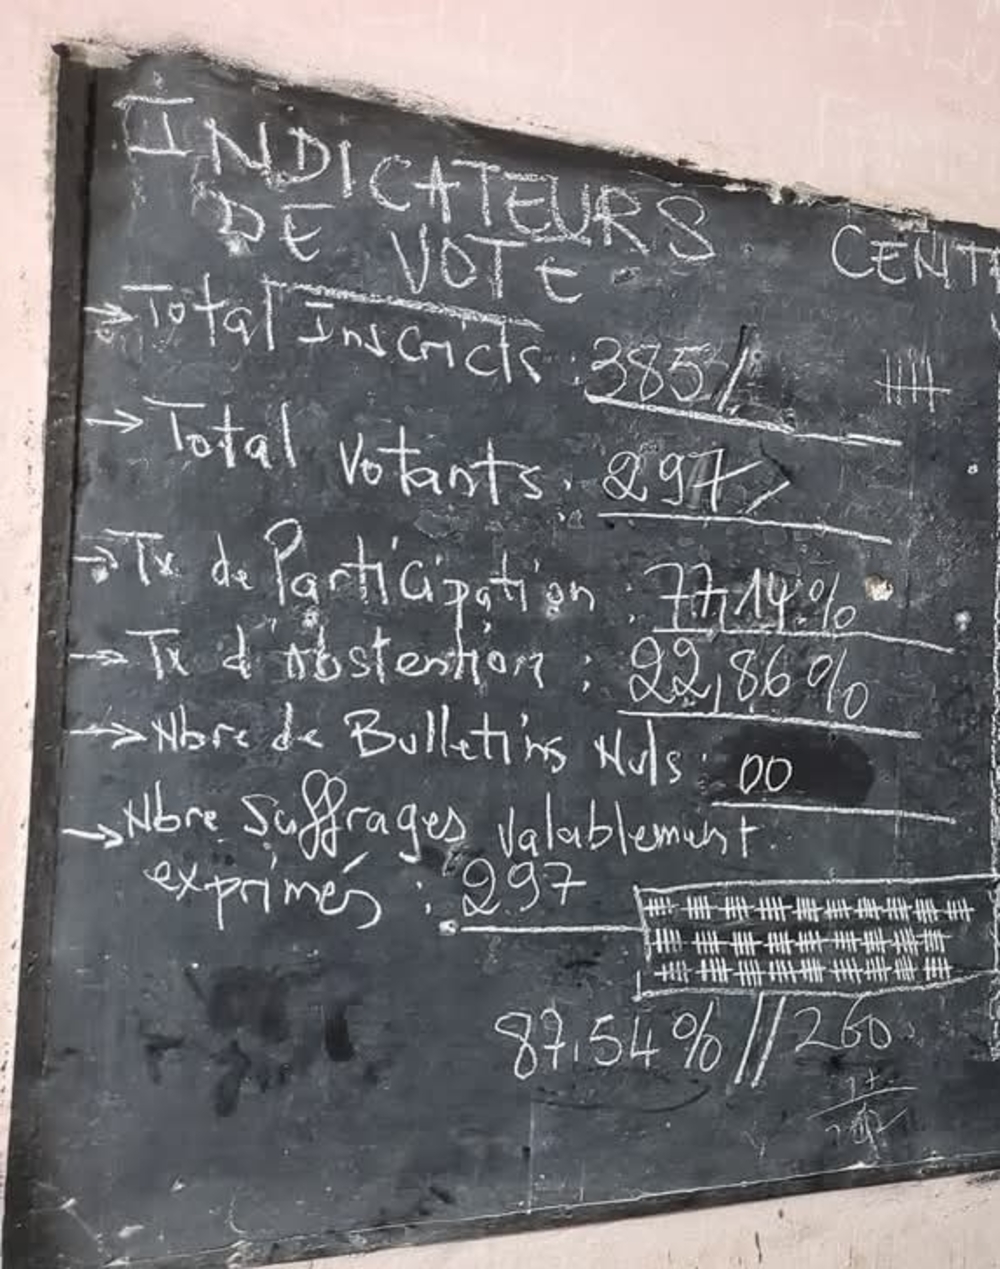 INDICATEURS
DE VOTE
CENT
→ Total Inscricts : 385/
→ Total votants : 297
→ Tx de Participation : 77,14%
→ Tx d'Abstention : 22,86%
→ Nbre de Bulletins Nuls : 00
→ Nbre Suffrages valablement
exprimés : 297
87.54% // 260